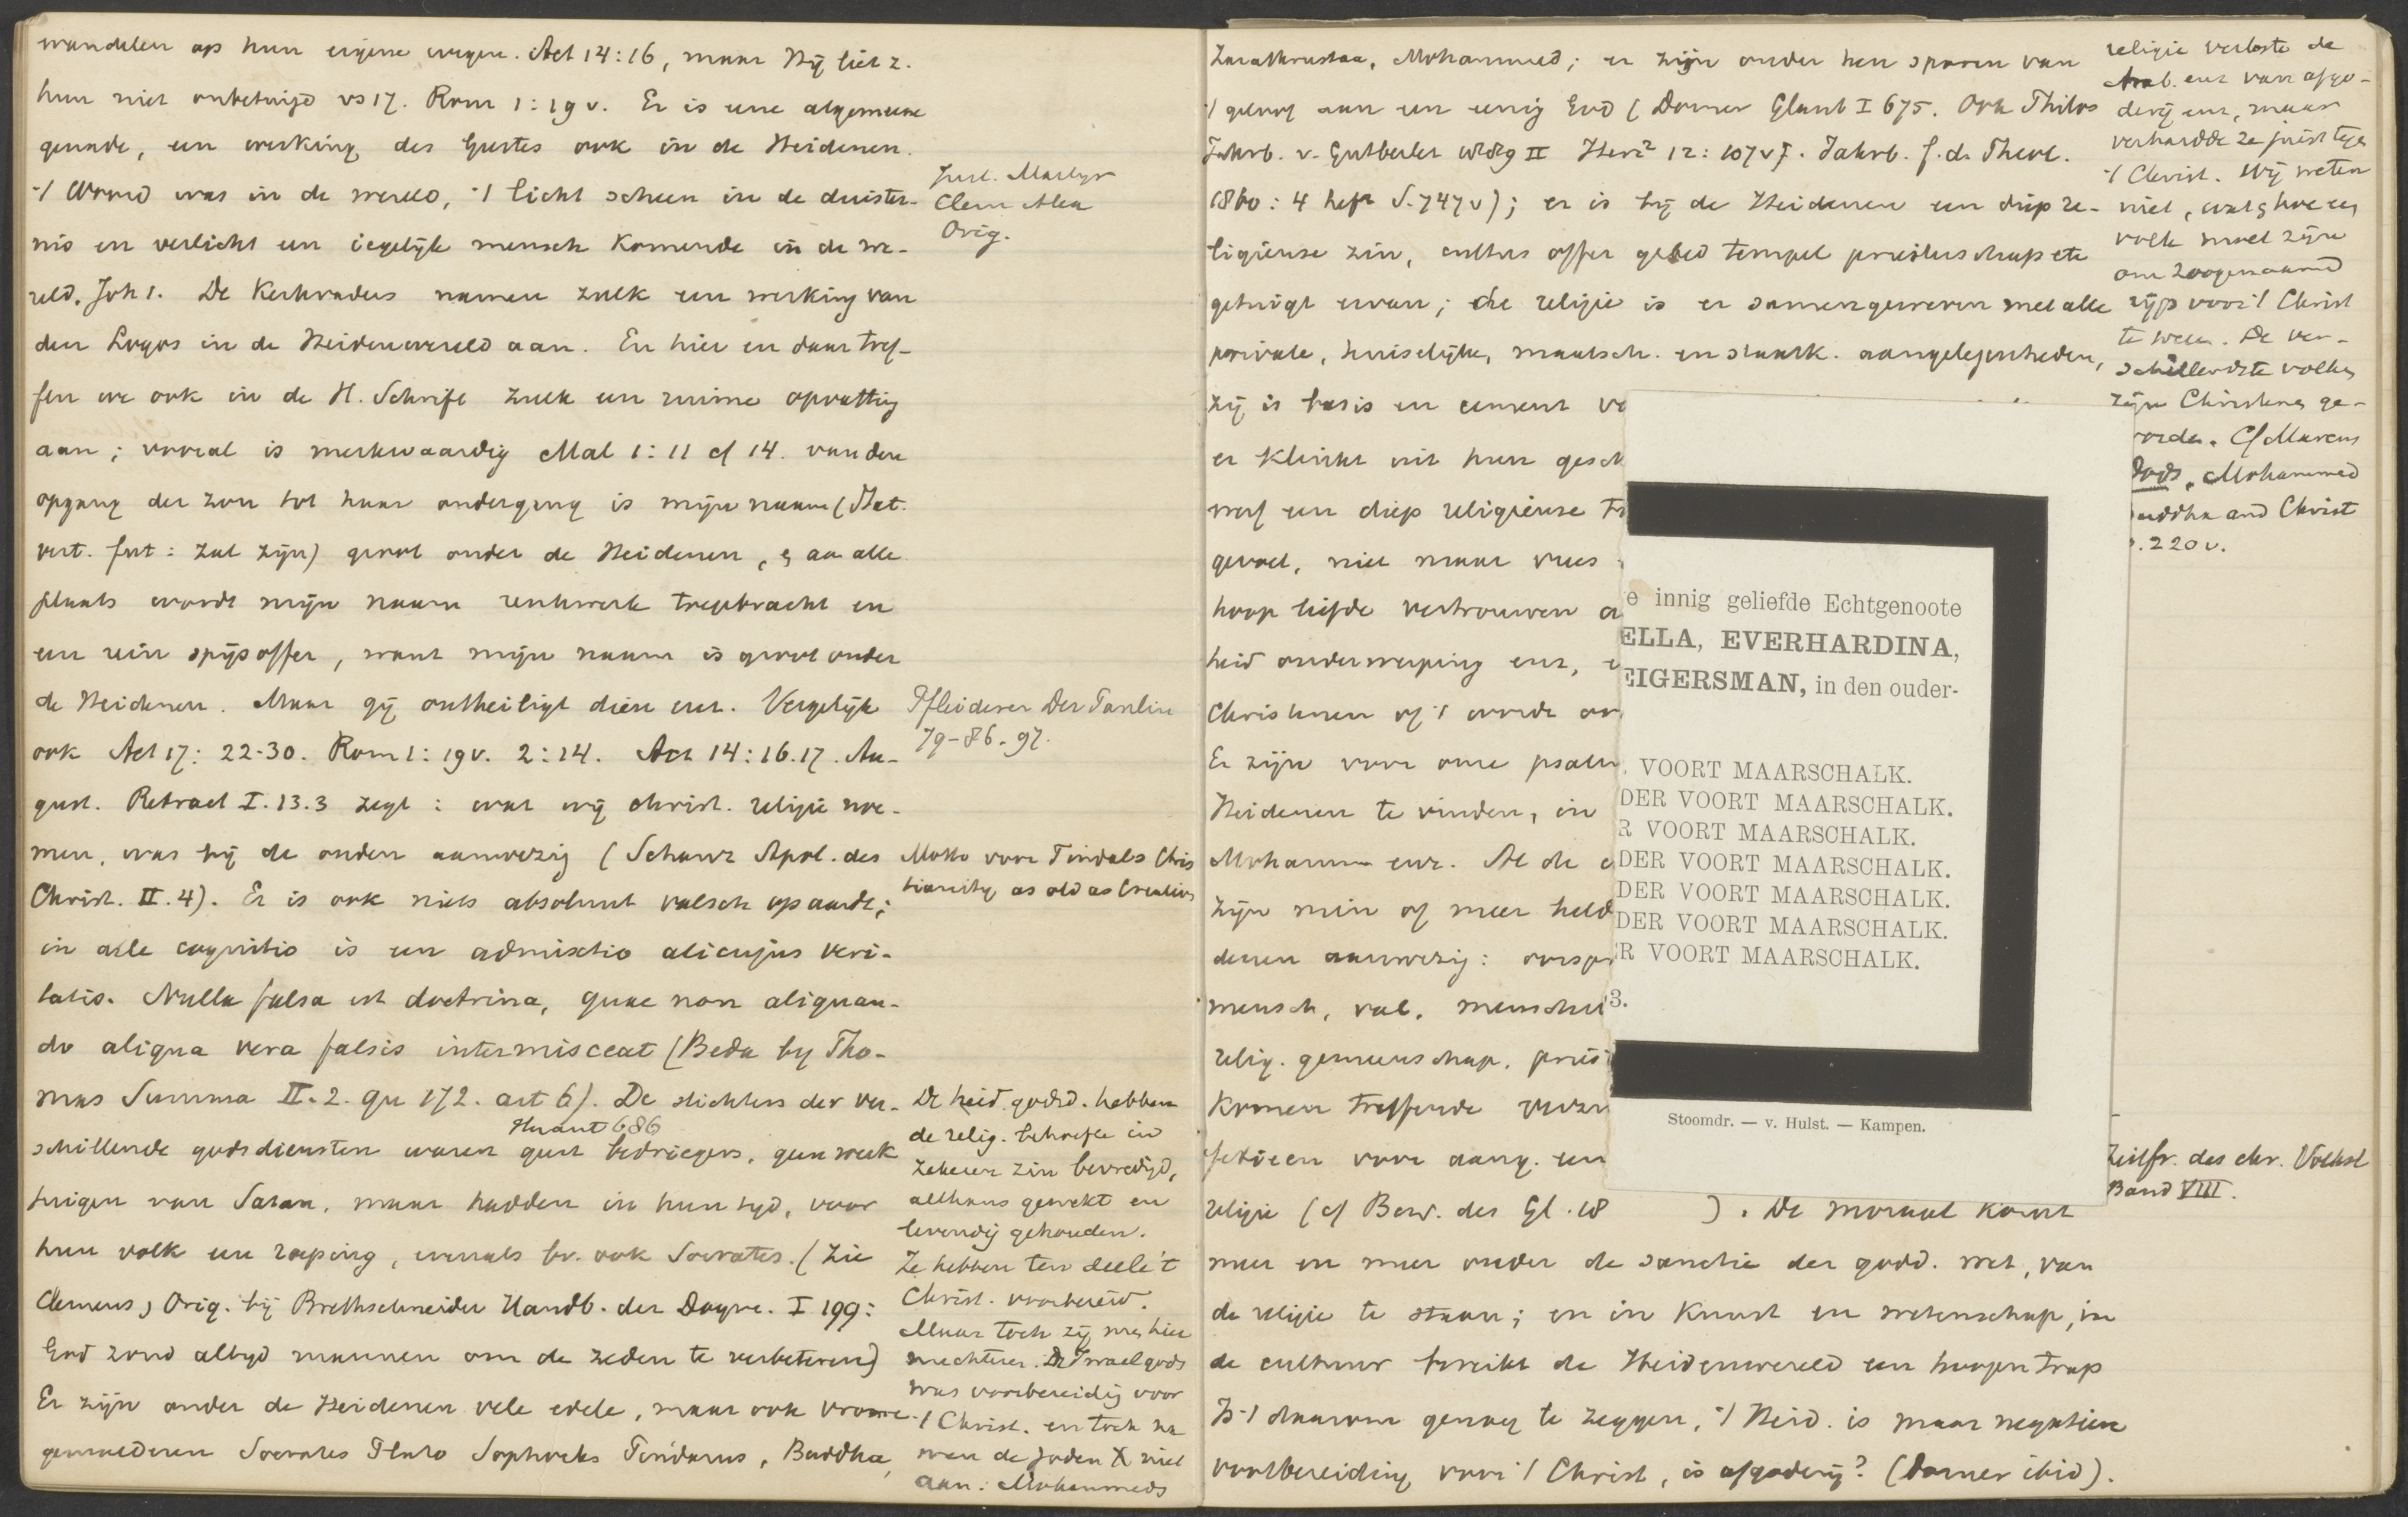 wandelen op hun eigene wegen. Act 14:16, maar Hij liet z.
hun niet onbetuigd vs 17. Rom 1:19 v. Er is eene algemeene
genade, een werking des Geestes ook in de Heidenen.
't Woord was in de wereld, 't licht scheen in de duister-
nis en verlicht een iegelijk mensch komende in de we-
reld. Joh 1. De Kerkvaders namen zulk een werking van
den Logos in de Heidenwereld aan. En hier en daar tref-
fen we ook in de H. Schrift zulk een ruime opvatting
aan; vooral is merkwaardig Mal 1:11 cf 14. van den
opgang der zon tot haar ondergang is mijn naam (Stat.
vert. fut: zal zijn) groot onder de Heidenen, & aan alle
plaats wordt mijn naam reukwerk toegebracht en
een rein spijsoffer, want mijn naam is groot onder
de Heidenen. Maar gij ontheiligt dien enz. Vergelijk
ook Act 17:22-30. Rom 1:19 v. 2:14. Act 14:16.17. Au-
gust. Retract I.13.3 zegt: wat wij christ. religie noe-
men, was bij de ouden aanwezig (Schanz Apol. des
Christ. II.4). Er is ook niets absoluut valsch op aarde;
in alle cognitio is een admixtio alicujus veri-
tatis. Nulla falsa est doctrina, quae non aliquan-
do aliqua vera falsis intermisceat (Beda by Tho-
mas Summa II.2. qu 172. art 6). De stichters der ver-
686
schillende godsdiensten waren geen bedriegers, geen werk
tuigen van Satan, maar hadden in hun tyd, voor
hun volk een roeping, evenals bv. ook Socrates. (Zie
Clemens, Orig. bij Brethschneider Handb. der Dogm. I 199:
God zond altyd mannen om de zeden te verbeteren)
Er zijn onder de Heidenen vele edele, maar ook vrome
gemoederen Socrates Plato Sophocles Pindarus, Buddha,
Just. Martyr
Clem Alex
Orig.
Pfleiderer Der Paulin
79-86. 97.
Motto voor Tindals Chris
tianity as old as Creation
De heid. godsd. hebben
de relig. behoefte in
zekeren zin bevredigd,
althans gewekt en
levendig gehouden.
Ze hebben ten deele 't
Christ. voorbereid.
Maar toch zij men hier
nuchter. De Israel gods
was voorbereidig voor
't Christ. en toch na
men de Joden X niet
aan. Mohammeds
Zarathrustra, Mohammed; er zijn onder hen sporen van
't geloof aan een eenig God (Dorner Glaub I 675. Ook Philos
Jahrb. v. Gutberlet II Herz² 12:107 v. Jahrb. f. d. Theol.
1860: 4 heft S. 747 v); er is bij de Heidenen een diep re-
ligieuse zin, cultus offer gebed tempel priesterschap etc
getuigt ervan; de religie is er samengeweven met alle
private, huiselijke, maatsch. en staatk. aangelegenheden,
zij is basis en cement
er klinkt uit hun
een diep religieuse
gevoel, niet maar vrees
hoop liefde vertrouwen
heid onderwerping enz,
Christenen of 't
Er zijn voor onze
Heidenen te vinden, in
Mohamm enz. Al de
zijn min of meer
denen aanwezig:
mensch, val,
relig. gemeenschap,
komen treffende
voor aang. een
religie (cf Bew. des Gl. 18 ). De moraal komt
meer en meer onder de sanctie der godd. wet, van
de religie te staan; en in kunst en wetenschap, in
de cultuur bereikt de Heidenwereld een hoogen trap
Is 't daarom genoeg te zeggen, 't Heid. is maar negatieve
voorbereiding voor 't Christ, is afgoderij? (Dorner ibid).
e innig geliefde Echtgenoote
ELLA, EVERHARDINA,
EIGERSMAN, in den ouder-
VOORT MAARSCHALK.
DER VOORT MAARSCHALK.
R VOORT MAARSCHALK.
DER VOORT MAARSCHALK.
DER VOORT MAARSCHALK.
DER VOORT MAARSCHALK.
R VOORT MAARSCHALK.
3.
Stoomdr. — v. Hulst. — Kampen.
religie verloste de
Arab. enz van afgo-
derij enz, maar
verhardde ze juist tegen
't Christ. Wij weten
niet, wat & hoe een
volk moet zijn
om zoogenaamd
rijp voor 't Christ
te wezen. De ver-
schillendste volken
zijn Christenen ge-
worden. Cf Marcus
Dods, Mohammed
Buddha and Christ
p. 220 v.
Zeitfr. des chr. Volksl
Band VIII.